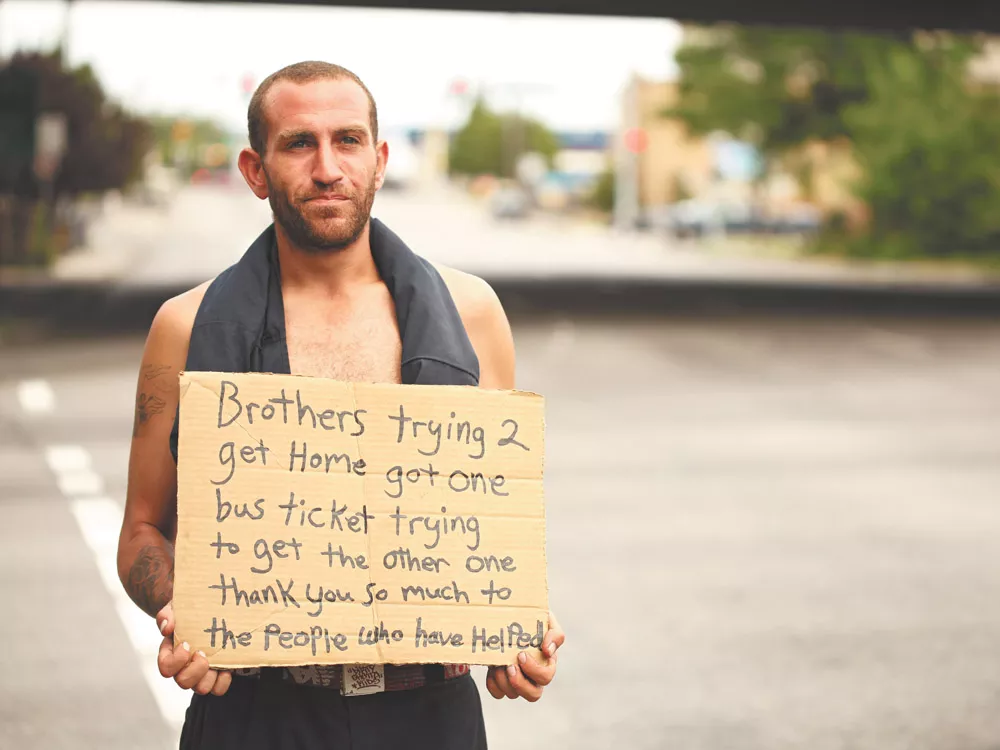 Brothers trying 2
get Home got one
bus ticket trying
to get the other one
thank you so much to
the People who have Helped